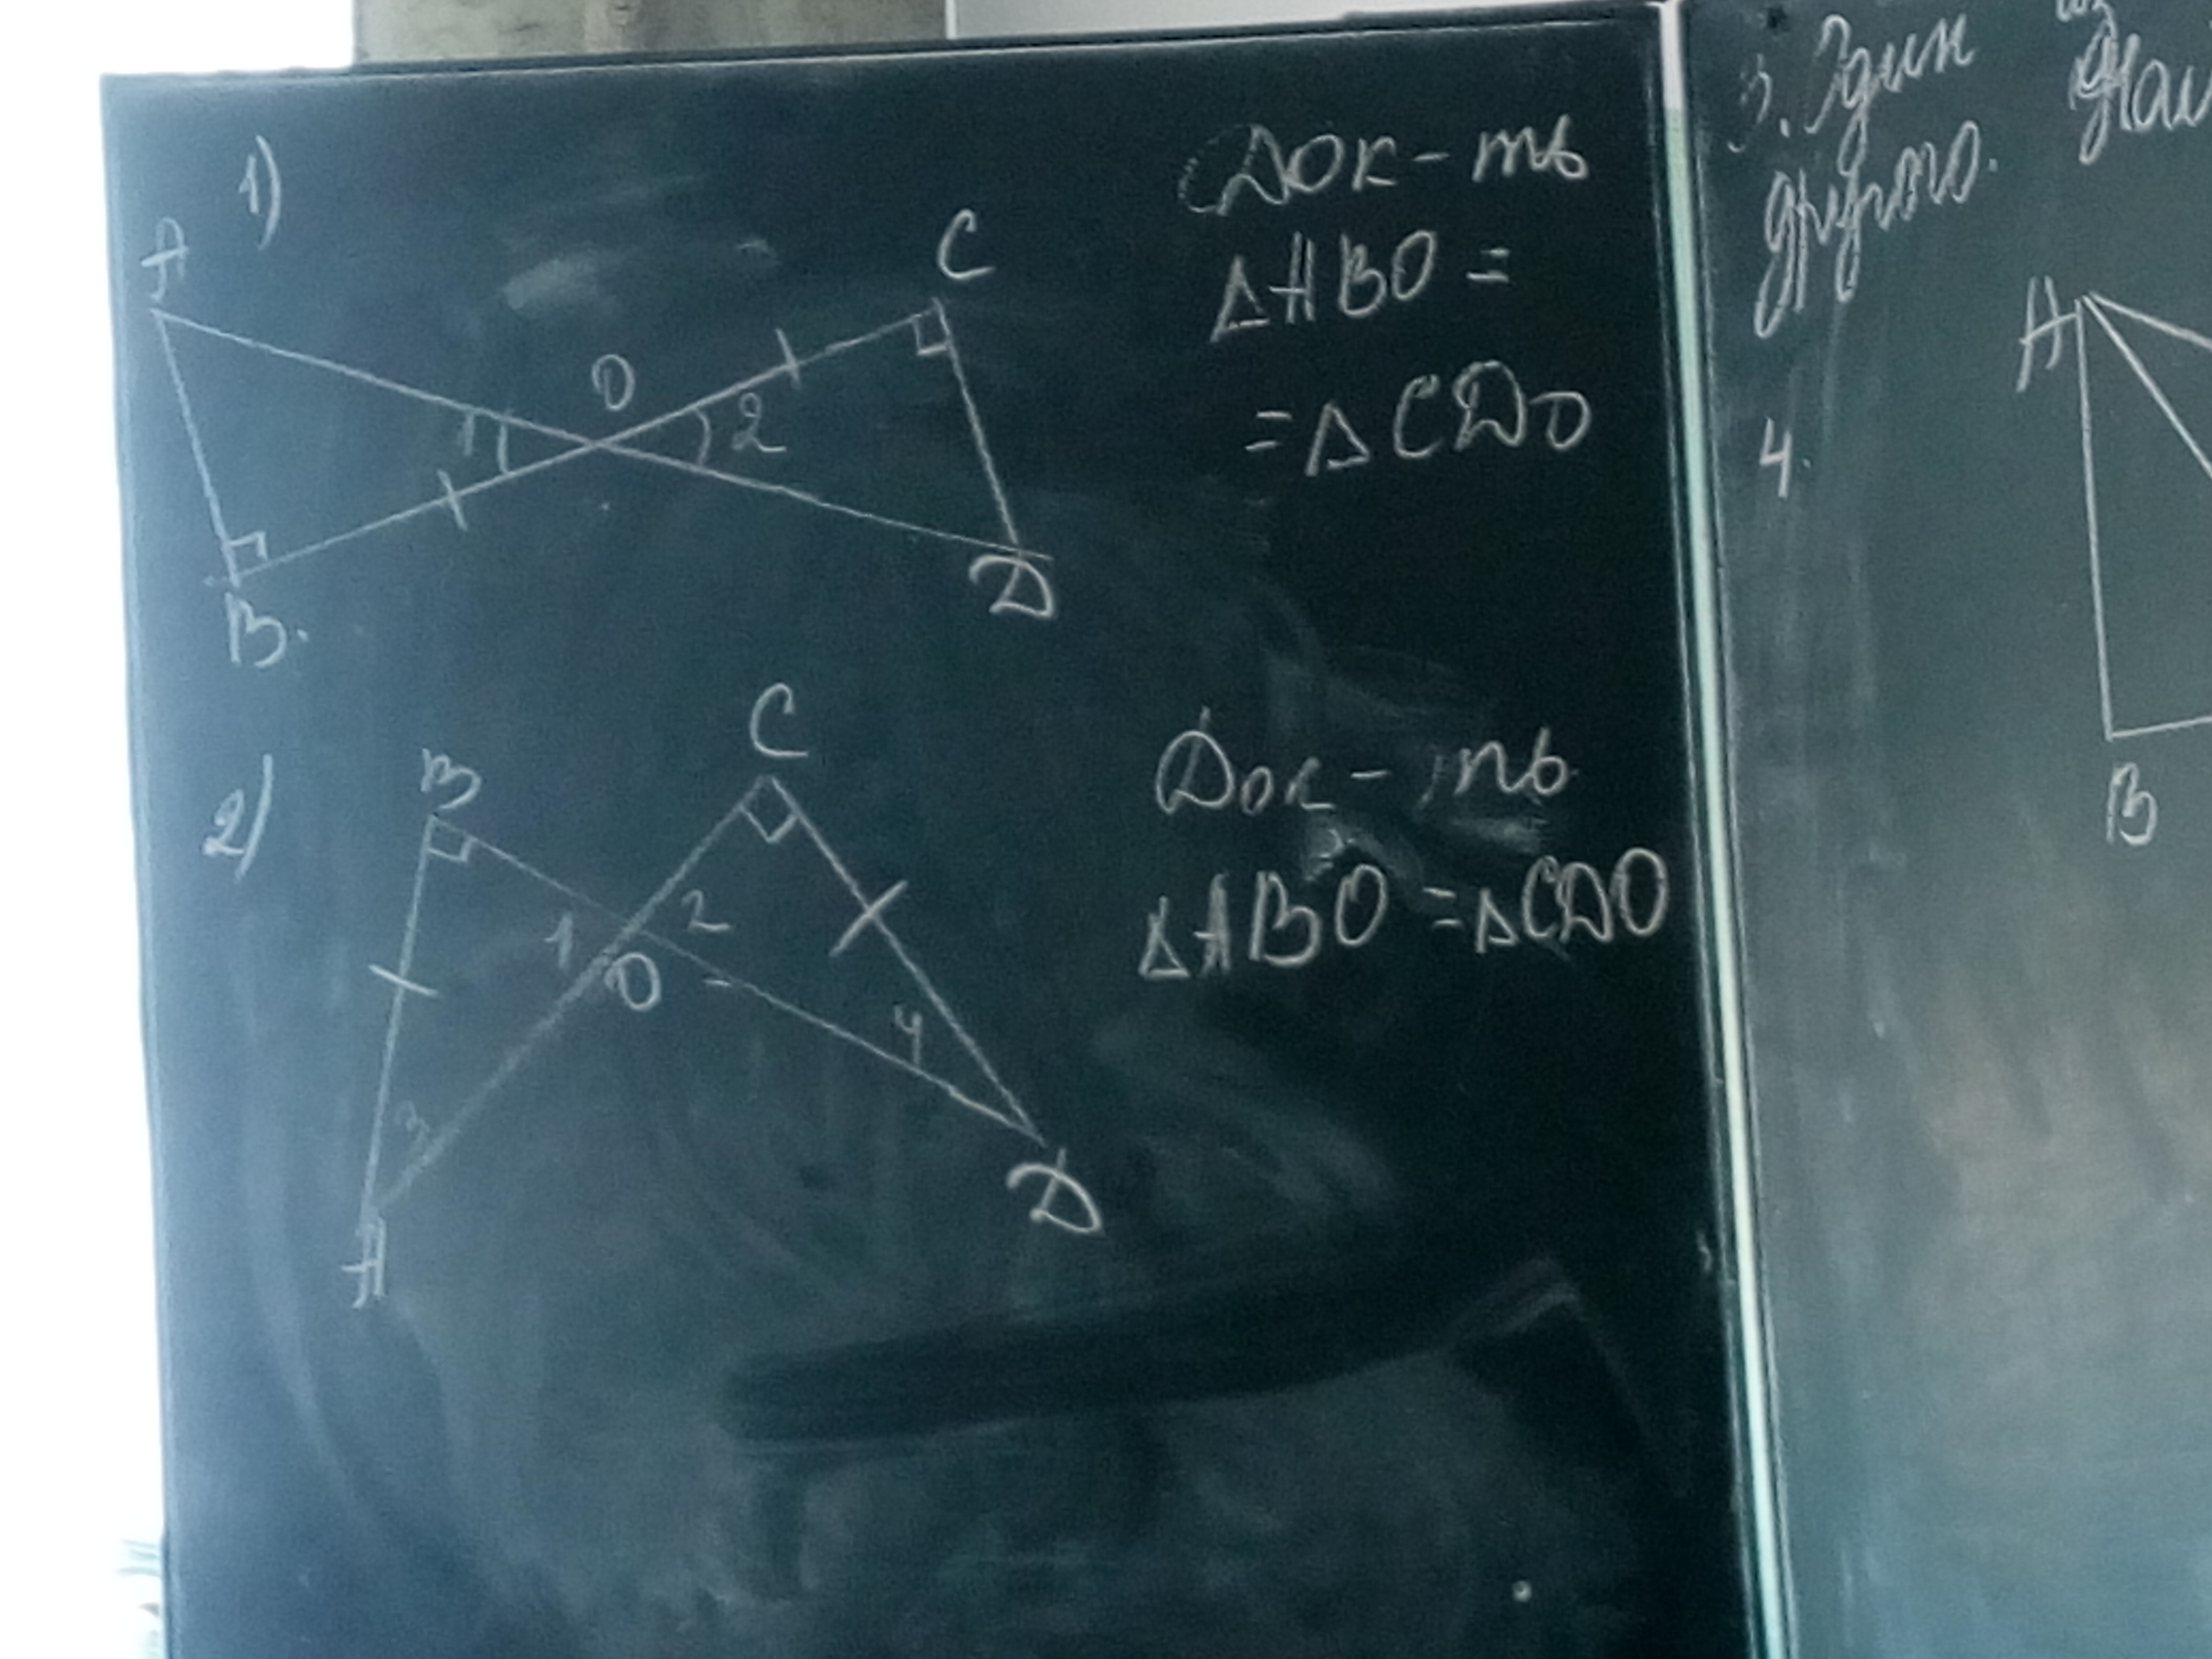 1)
A
C
O
1
2
B.
D
Док-ть
ΔABO =
= ΔCDO
2)
B
C
1
2
O
3
4
A
D
Док-ть
ΔABO = ΔCDO
3. Один из
другого.
4.
A
B